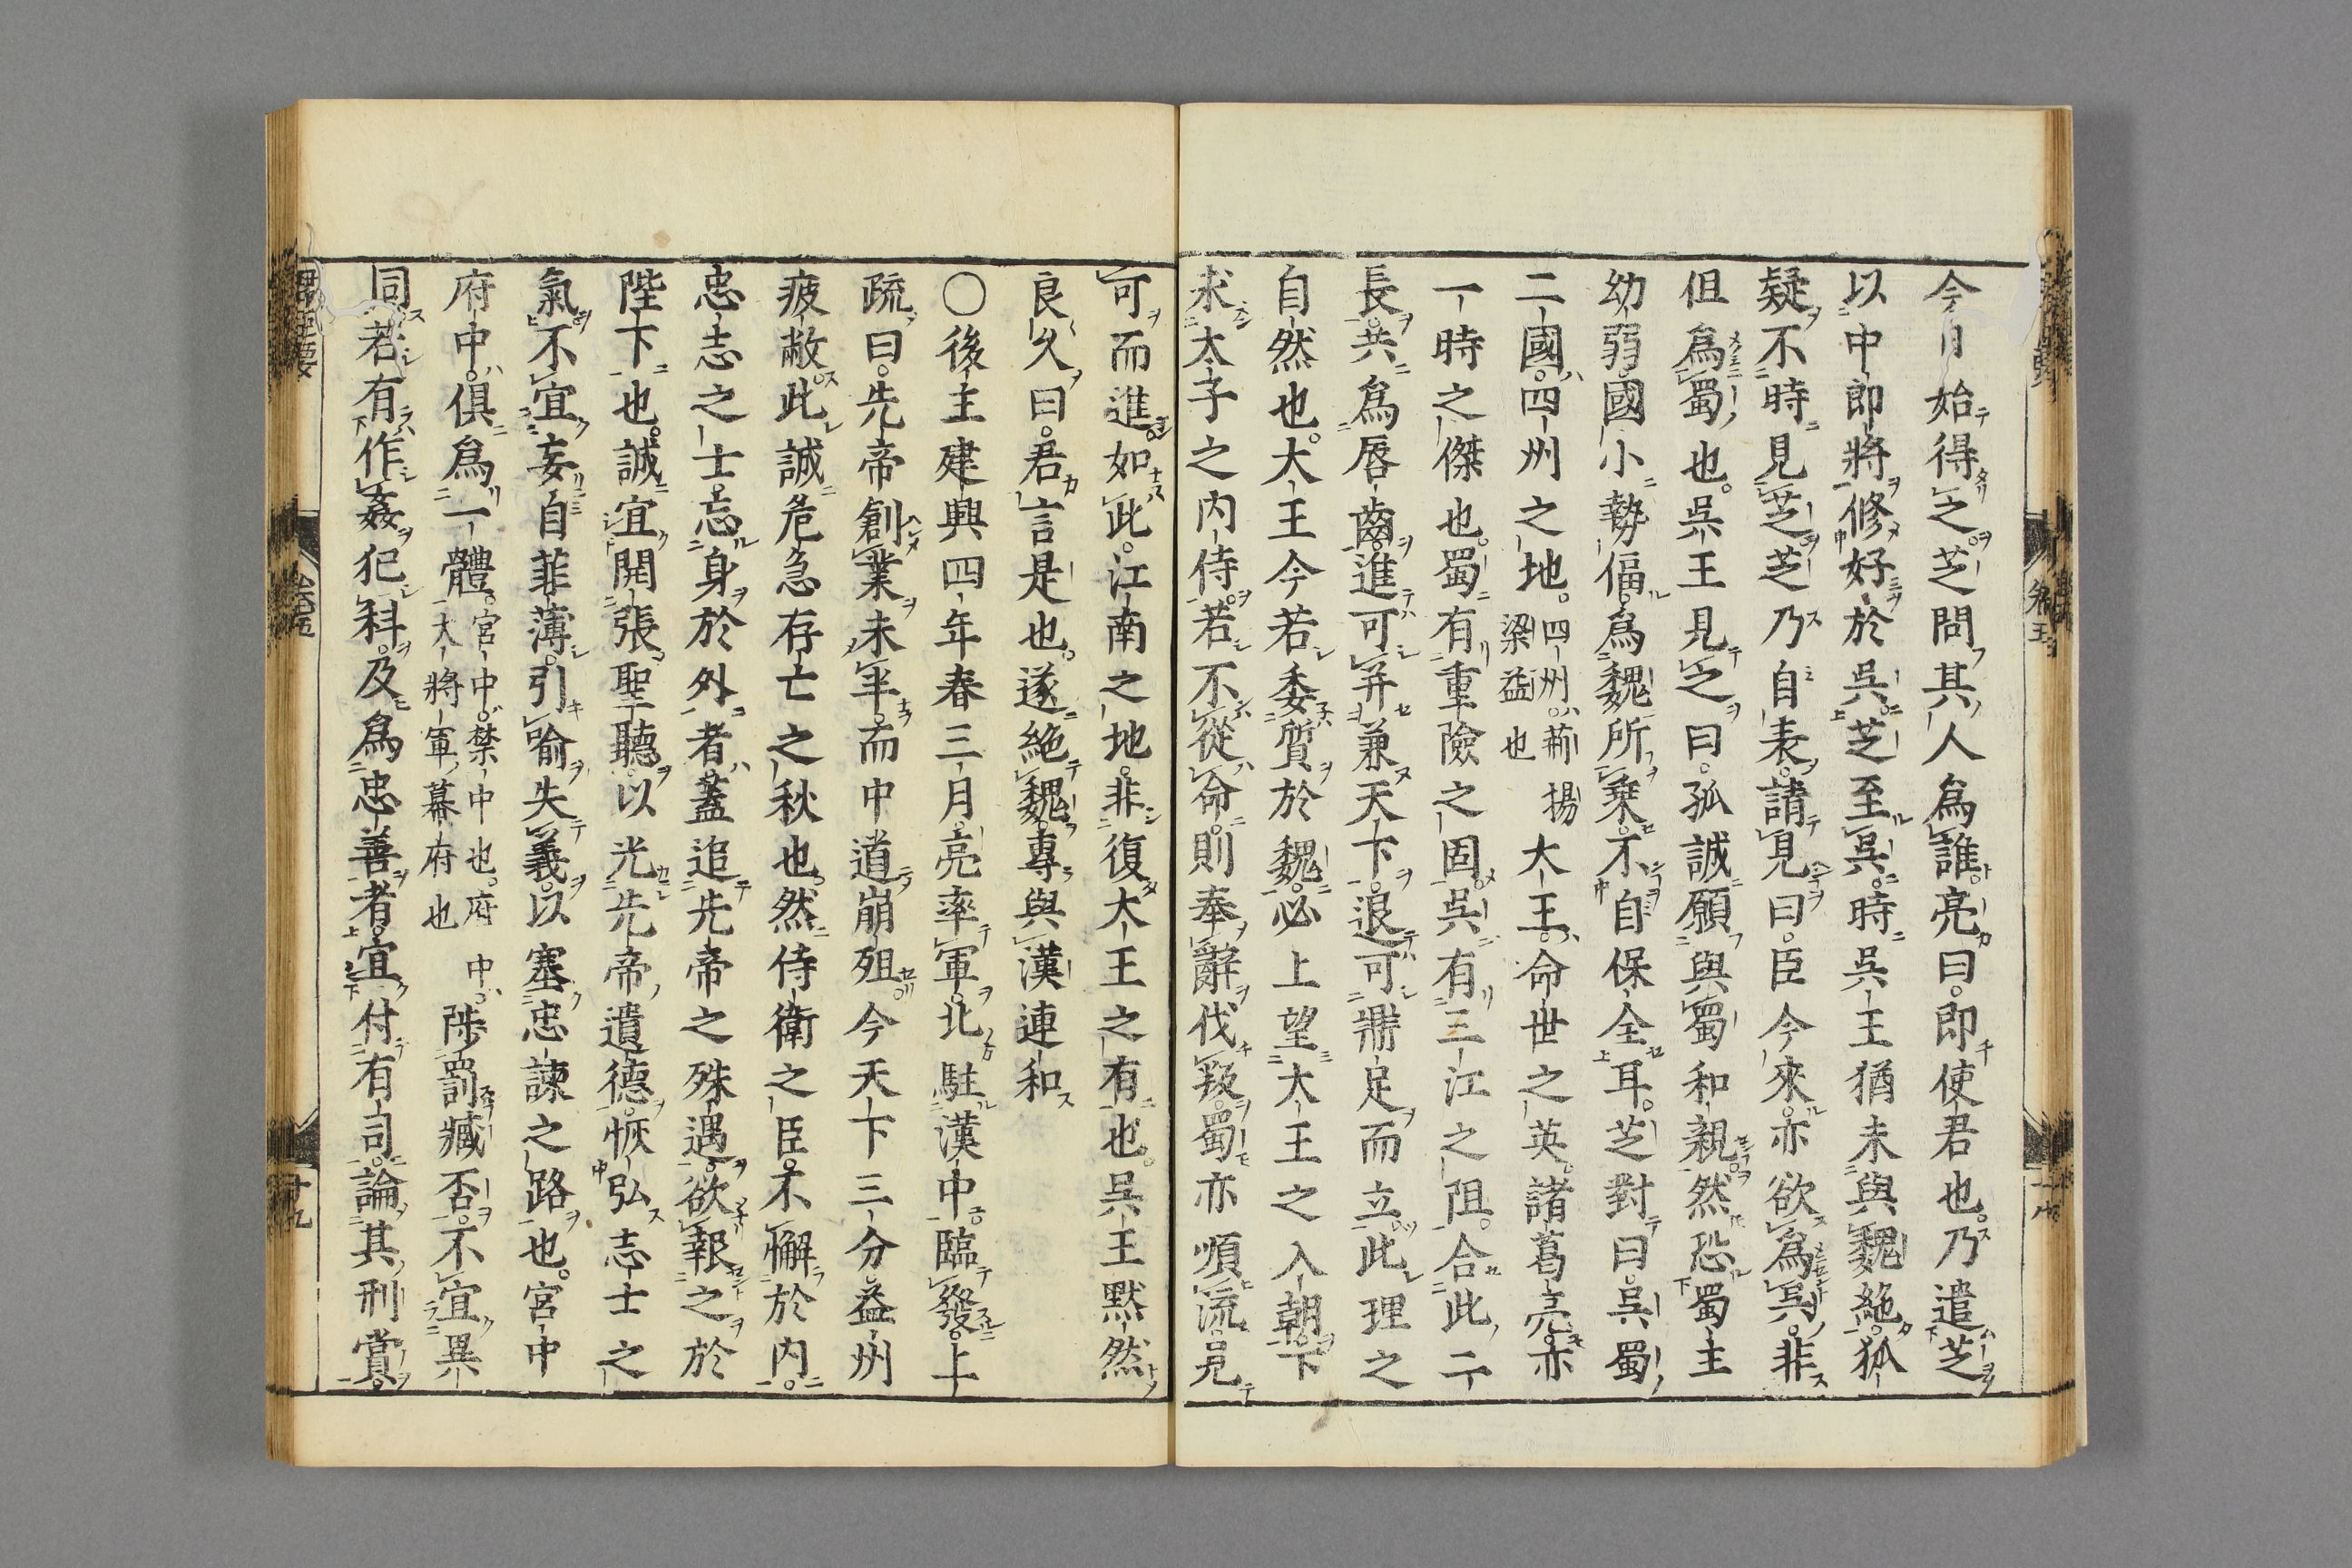 今月始得之芝問其人為誰亮曰即使君也乃遣芝
以中即將修好於吳芝至吳時吳王猶未與魏絶狐
疑不時見芝芝乃自表請見曰臣今來亦欲為吳非
但為蜀也吳王見之曰孤誠願與蜀和親然恐蜀主
幼弱國小勢偪為魏所乗不自保全耳芝對曰吳蜀
二國四州之地四州荊揚梁益也大王命世之英諸葛亮亦
一時之傑也蜀有重險之固吳有三江之阻合此二
長共為唇齒進可并兼天下退可鼎足而立此理之
自然也大王今若委質於魏必上望大王之入朝下
求太子之内侍若不從命則奉辭伐叛蜀亦順流見
可而進如此江南之地非復大王之有也吳王默然
良久曰君言是也遂絶魏專與漢連和
〇後主建興四年春三月亮率軍北駐漢中臨發上
疏曰先帝創業未半而中道崩殂今天下三分益州
疲敝此誠危急存亡之秋也然侍衛之臣不懈於内
忠志之士忘身於外者蓋追先帝之殊遇欲報之於
陛下也誠宜開張聖聽以光先帝遺德恢弘志士之
氣不宜妄自菲薄引喻失義以塞忠諫之路也宮中
府中俱為一體宮中禁中也府中大將軍幕府也陟罰臧否不宜異
同若有作姦犯科及為忠善者宜付有司論其刑賞
卷五
十九